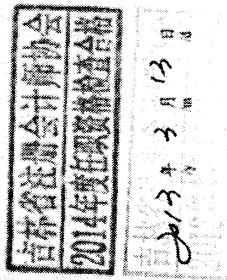 吉林省注册会计师协会
2014年度任职资格检查合格
2013年3月13日
y m d